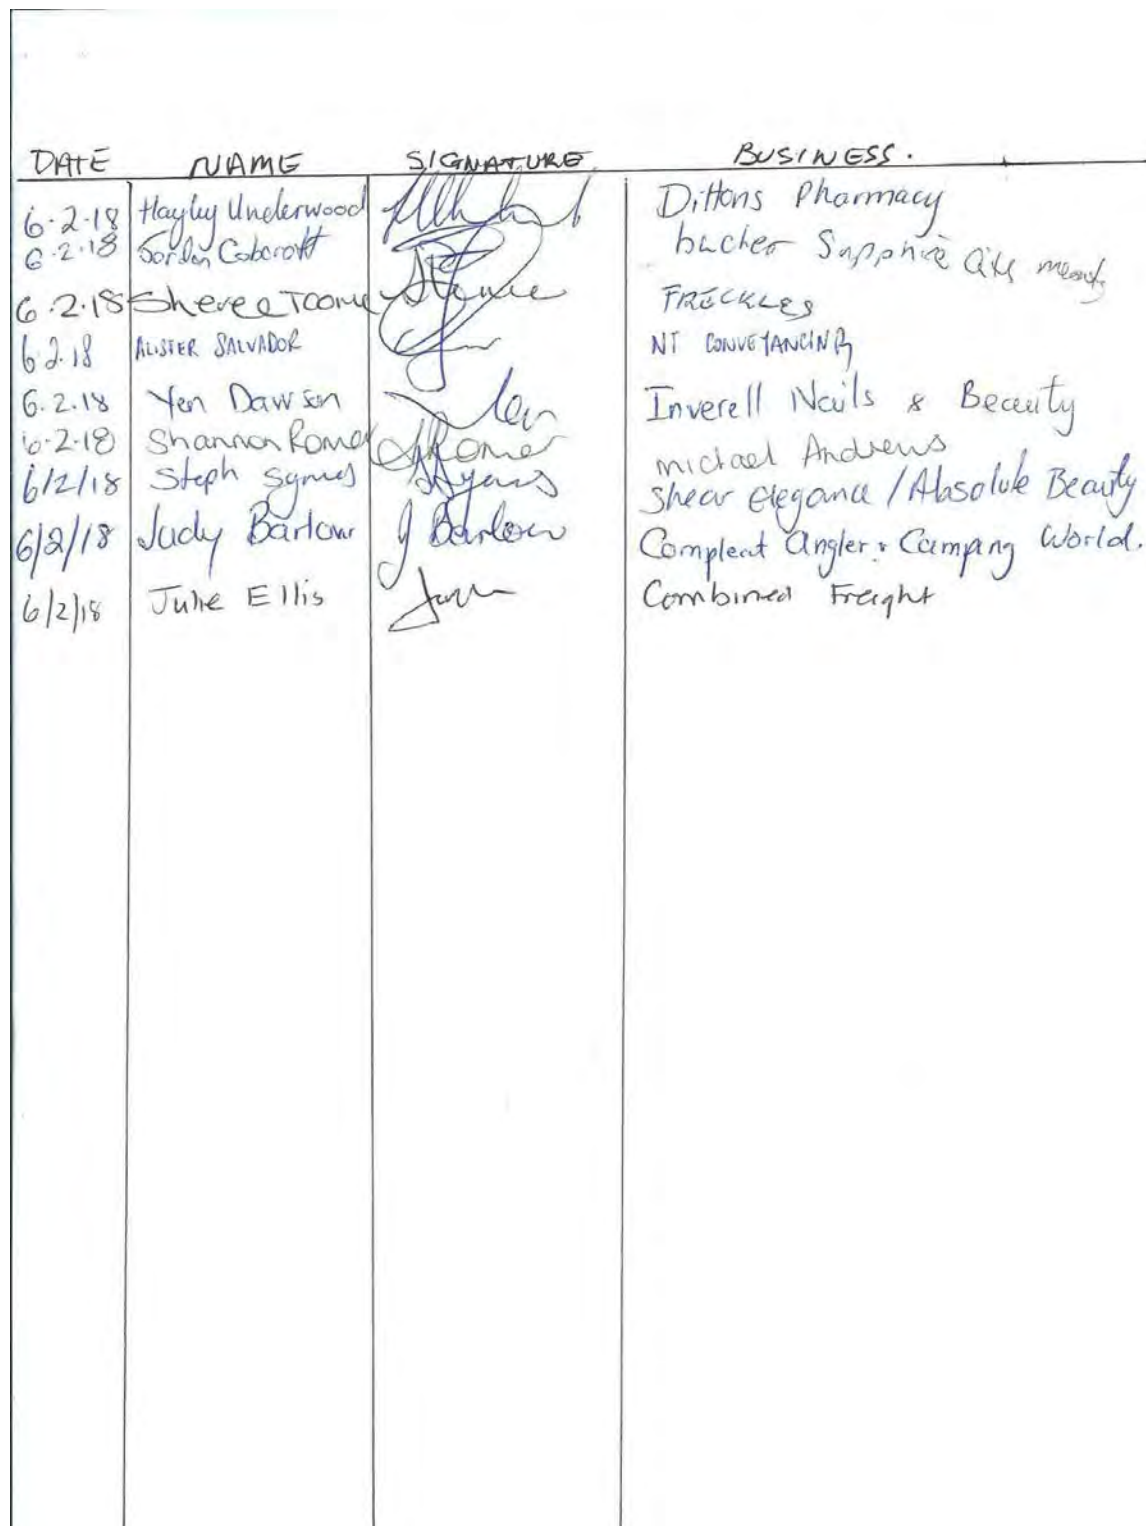 DATE NAME SIGNATURE BUSINESS.
6.2.18 Hayley Underwood Dittons Pharmacy
6.2.18 Jordan Cobcroft Sapphire City meats
6.2.18 Sheree Toome FRECKLES
6.2.18 ALISTER SALVADOR NT CONVEYANCING
6.2.18 Yen Dawson Yen Inverell Nails & Beauty
6.2.18 Shannon Romer SRomer michael Andrews
6/2/18 Steph Symes SSymes Shear Elegance / Absolute Beauty
6/2/18 Judy Barlow J Barlow Compleat Angler & Camping World.
6/2/18 Julie Ellis Combined Freight